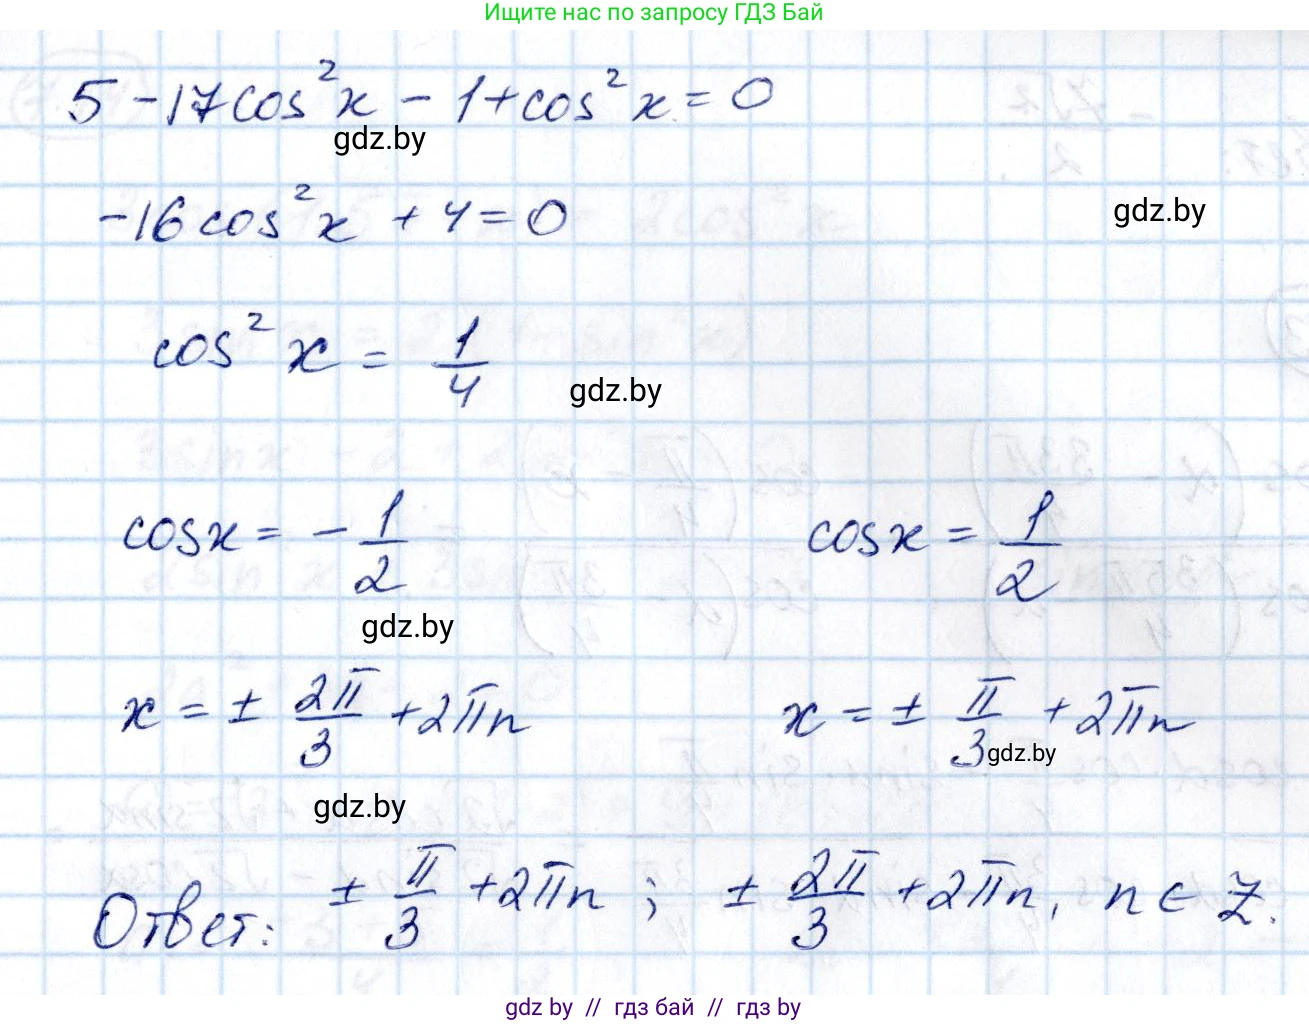 Ищите нас по запросу ГДЗ Бай
5 - 17cos²x - 1 + cos²x = 0
gdz.by
-16cos²x + 4 = 0
gdz.by
cos²x = 1/4
gdz.by
cosx = -1/2 cosx = 1/2
gdz.by
x = ± 2π/3 + 2πn x = ± π/3 + 2πn
gdz.by
gdz.by
Ответ: ± π/3 + 2πn; ± 2π/3 + 2πn, n ∈ Z.
gdz by // гдз бай // gdz by